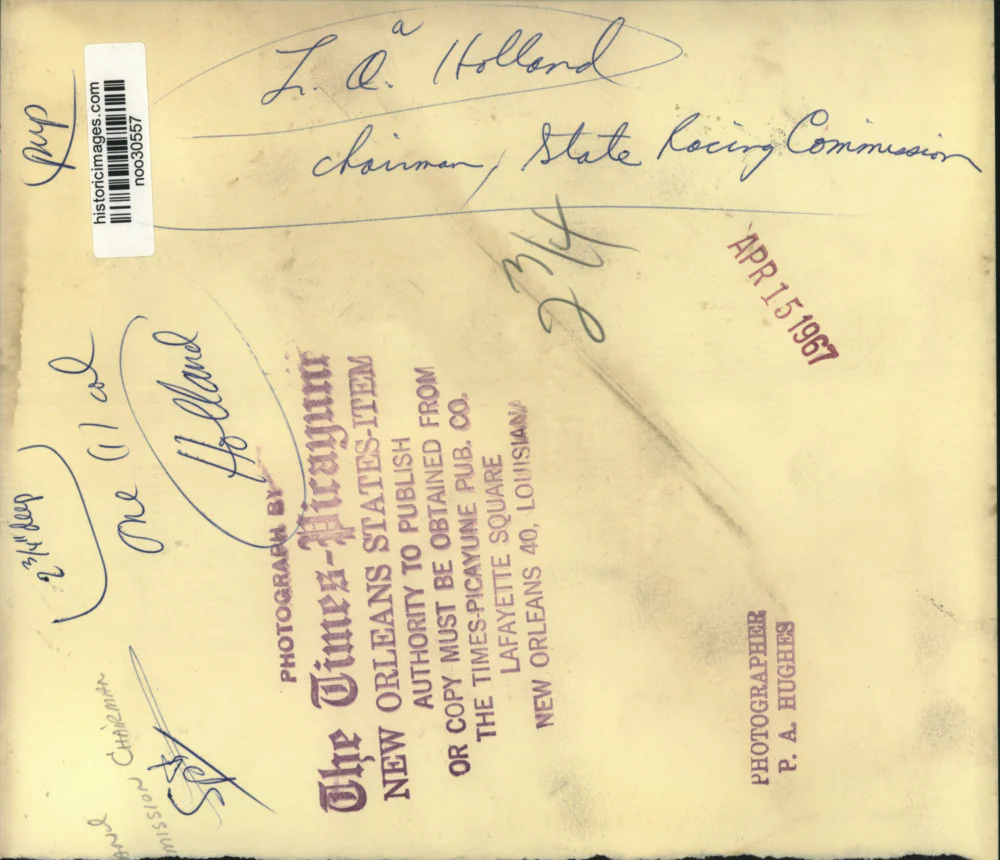 L. Q. Holland
a
chairman, State Racing Commission
pup
historicimages.com
noo30557
2 3/4
APR 15 1967
2 3/4" deep
one (1) col
Holland
PHOTOGRAPH BY
The Times-Picayune
NEW ORLEANS STATES-ITEM
AUTHORITY TO PUBLISH
OR COPY MUST BE OBTAINED FROM
THE TIMES-PICAYUNE PUB. CO.
LAFAYETTE SQUARE
NEW ORLEANS 40, LOUISIANA
PHOTOGRAPHER
P. A. HUGHES
AND
MISSION CHAIRMAN